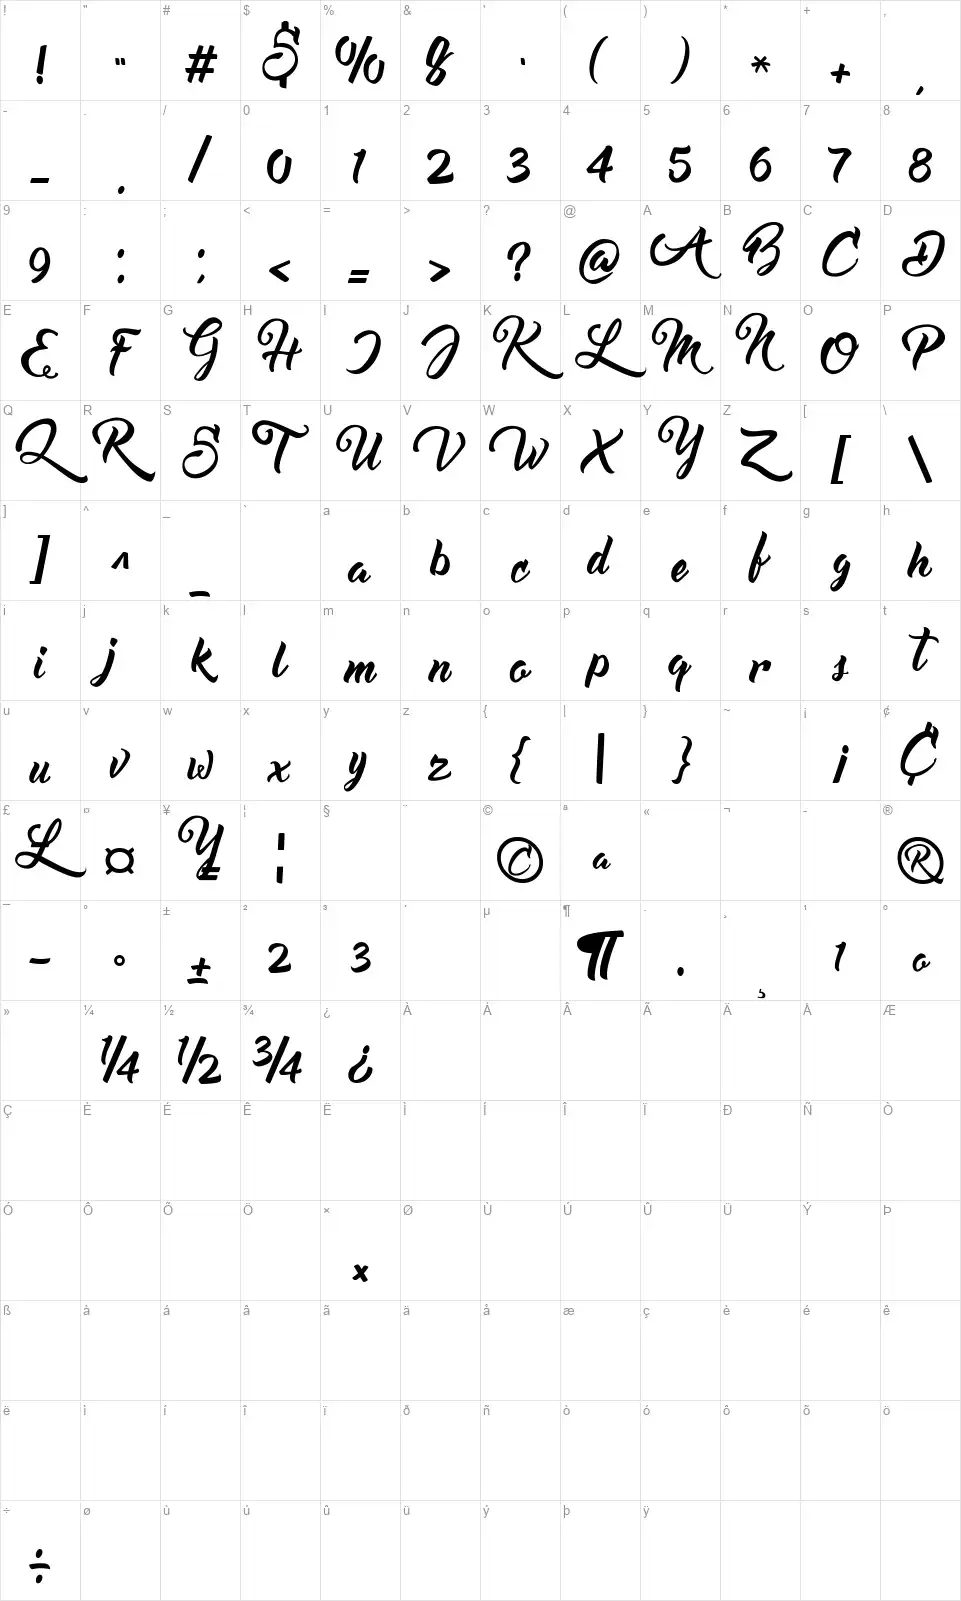 ! " # $ % & ' ( ) * + ,
! " # $ % & ' ( ) * + ,
- . / 0 1 2 3 4 5 6 7 8
- . / 0 1 2 3 4 5 6 7 8
9 : ; < = > ? @ A B C D
9 : ; < = > ? @ A B C D
E F G H I J K L M N O P
E F G H I J K L M N O P
Q R S T U V W X Y Z [ \
Q R S T U V W X Y Z [ \
] ^ _ ` a b c d e f g h
] ^ _ a b c d e f g h
i j k l m n o p q r s t
i j k l m n o p q r s t
u v w x y z { | } ~ ¡ ¢
u v w x y z { | } ¡ ¢
£ ¤ ¥ ¦ § ¨ © ª « ¬ - ®
£ ¤ ¥ ¦ © ª ®
¯ ° ± ² ³ ´ µ ¶ · ¸ ¹ º
¯ ° ± ² ³ ¶ · ¸ ¹ º
» ¼ ½ ¾ ¿ À Á Â Ã Ä Å Æ
¼ ½ ¾ ¿
Ç È É Ê Ë Ì Í Î Ï Ð Ñ Ò
Ó Ô Õ Ö × Ø Ù Ú Û Ü Ý Þ
×
ß à á â ã ä å æ ç è é ê
ë ì í î ï ð ñ ò ó ô õ ö
÷ ø ù ú û ü ý þ ÿ
÷